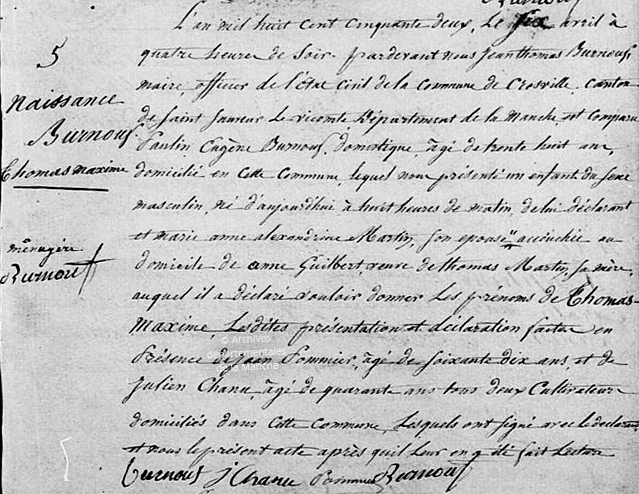 5
naissance
Burnouf
Thomas maxime
ménagère
Burnouf
L'an mil huit cent cinquante deux, Le six avril à
quatre heures de soir. pardevant nous Jean thomas Burnouf,
maire officier de l'État Civil de la Commune de Crosville, Canton
de Saint Sauveur Le vicomte Département de la Manche, est Comparu
Paulin Eugène Burnouf, domestique, âgé de trente huit ans,
domicilié en Cette Commune, lequel nous présenté un enfant du sexe
masculin, né d'aujourd'hui à huit heures de matin, de lui déclarant
et marie anne alexandrine Martin, son épouse " accouchée au
domicile de anne Guilbert, veuve de thomas Martin, sa mère,
auquel il a déclaré vouloir donner Les prénoms de Thomas
Maxime, Lesdites présentation et déclaration faites en
Présence de Jean Pommier, âgé de soixante dix ans, et de
Julien Chanu âgé de quarante ans tous deux Cultivateurs
domiciliés dans Cette Commune, Lesquels ont signé avec le déclarant
et nous le présent acte après qu'il Leur en a été fait Lecture
burnouf J Chanu Pommier Burnouf
© Archives
départementales
de la Manche